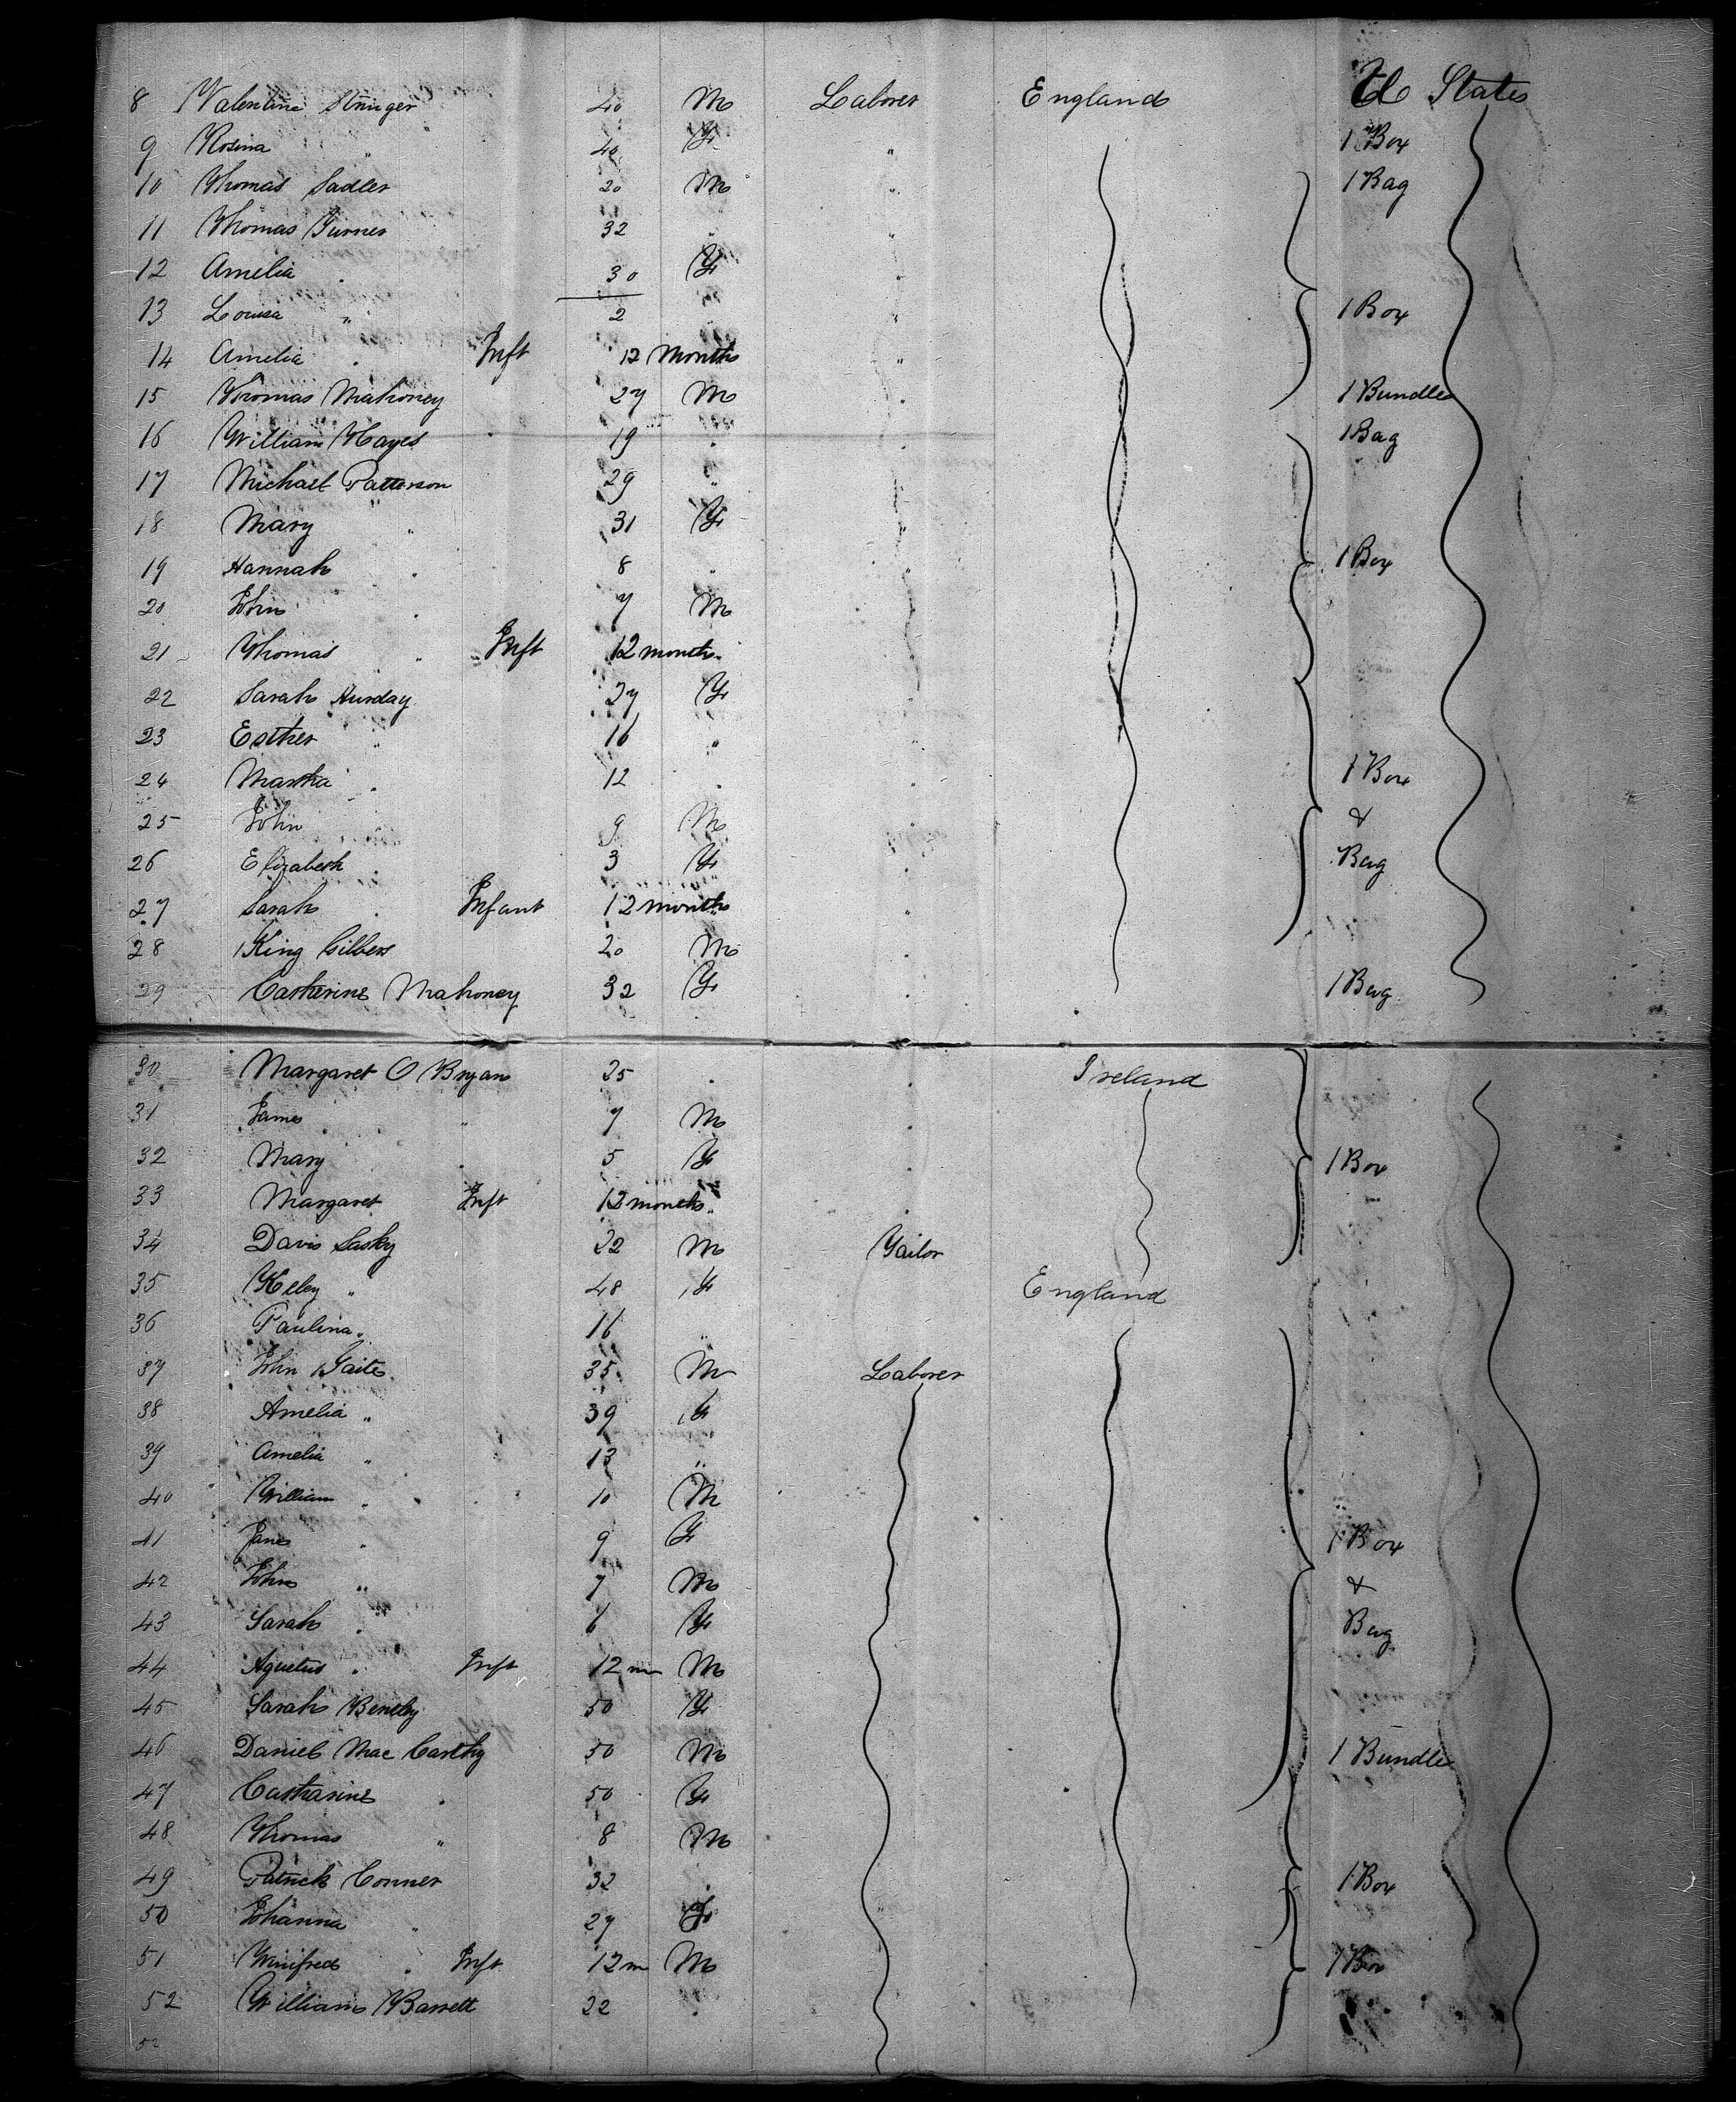 8 Valentine Stringer 40 M Laborer England U States
9 Rosina " 40 F " 1 Box
10 Thomas Sadler 20 M " 1 Bag
11 Thomas Turner 32 " "
12 Amelia " 30 F "
13 Louisa " 2 " " 1 Box
14 Amelia " Inft 12 Months "
15 Thomas Mahoney 27 M " 1 Bundle
16 William Hayes 19 " " 1 Bag
17 Michael Patterson 29 " "
18 Mary " 31 F "
19 Hannah " 8 " " 1 Box
20 John " 7 M "
21 Thomas " Inft 12 months "
22 Sarah Hurday 27 F "
23 Esther " 16 " "
24 Martha " 12 " " 1 Box
25 John " 9 M " &
26 Elizabeth " 3 F " Bag
27 Sarah " Infant 12 months "
28 King Gilbert 20 M "
29 Catherine Mahoney 32 F " 1 Bag
30 Margaret O Bryan 25 " " Ireland
31 James " 7 M "
32 Mary " 5 F " 1 Box
33 Margaret Inft 12 months "
34 Davis Sasky 22 M Tailor
35 " 48 F England
36 Paulina " 16 "
37 John Gaite 35 M Laborer
38 Amelia " 39 F
39 Amelia " 13 "
40 William " 10 M
41 Jane " 9 F 1 Box
42 John " 7 M &
43 Sarah " 6 F Bag
44 Agustus " Inft 12 m M
45 Sarah 50 F
46 Daniel Mac Carthy 50 M 1 Bundle
47 Catharine " 50 F
48 Thomas " 8 M
49 Patrick Conner 32 " 1 Box
50 Johanna " 27 F
51 Winifred " Inft 12 m M 1 Box
52 William Barrett 22 "